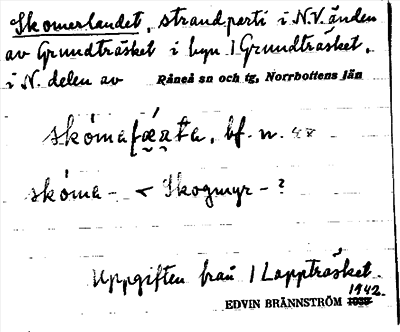 Skomerlandet, strandparti i N.V. änden
av Grundträsket i byn 1 Grundträsket,
i N. delen av Råneå sn och tg, Norrbottens län
bf. n.
skóma - < Skogmyr - ?
Uppgiften från 1 Lappträsket.
1942.
EDVIN BRÄNNSTRÖM 1939